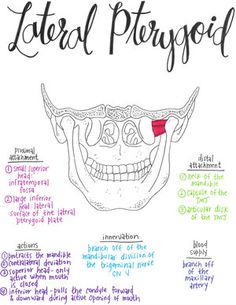 Lateral Pterygoid
proximal
attachment
① small superior
head:
infratemporal
fossa
② large inferior
head: lateral
surface of the lateral
pterygoid plate
distal
attachment
① neck of the
mandible
② capsule of
the TMJ
③ articular disk
of the TMJ
actions
① protracts the mandible
② contralateral deviation
③ superior head - only
active when mouth
is closed
④ inferior head - pulls the condyle forward
& downward during active opening of mouth
innervation
branch off of the
mandibular division of
the trigeminal nerve
CN V
blood
supply
branch off
of the
maxillary
artery